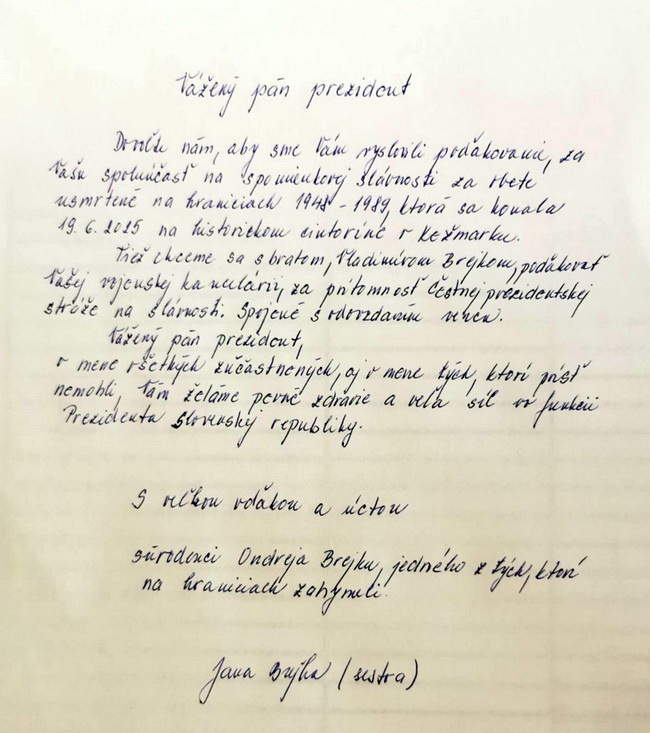 Vážený pán prezident
Dovoľte nám, aby sme Vám vyslovili poďakovanie, za
Vašu spoluúčasť na spomienkovej slávnosti za obete
usmrtené na hraniciach 1948 - 1989, ktorá sa konala
19. 6. 2025 na historickom cintoríne v Kežmarku.
Tiež chceme sa s bratom, Vladimírom Brejkom, poďakovať
Vašej vojenskej kancelárii, za prítomnosť čestnej prezidentskej
stráže na slávnosti. Spojené s odovzdaním venca.
Vážený pán prezident,
v mene všetkých zúčastnených, aj v mene tých, ktorí prísť
nemohli, Vám želáme pevné zdravie a veľa síl vo funkcii
Prezidenta Slovenskej republiky.
S veľkou vďakou a úctou
súrodenci Ondreja Brejku, jedného z tých, ktorí
na hraniciach zahynuli.
Jana Brejka (sestra)